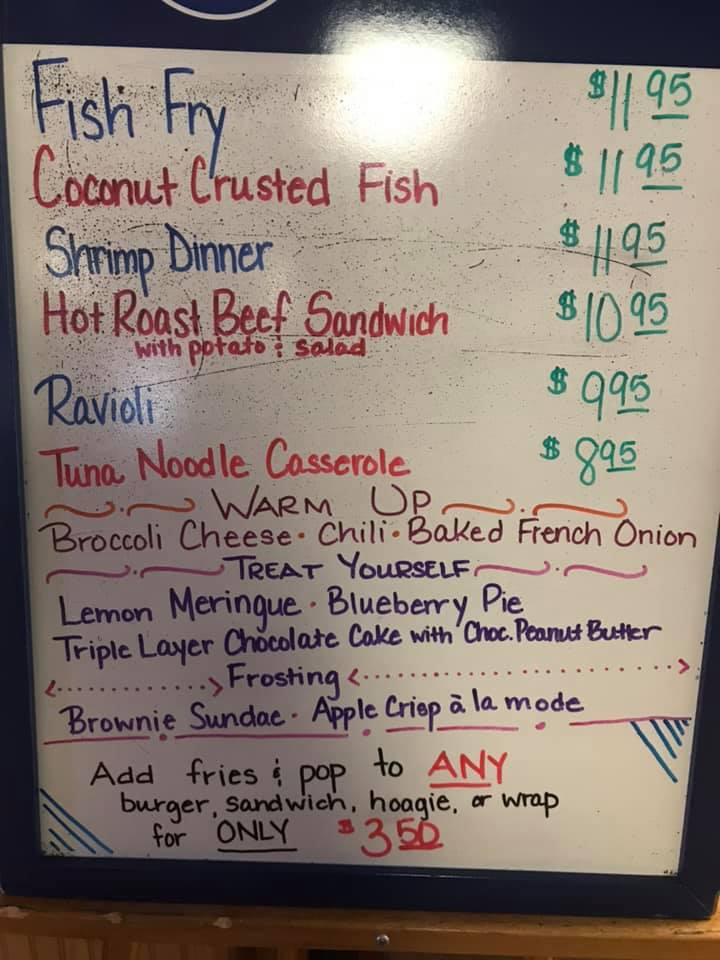 Fish Fry $11.95
Coconut Crusted Fish $11.95
Shrimp Dinner $11.95
Hot Roast Beef Sandwich $10.95
with potato & salad
Ravioli $9.95
Tuna Noodle Casserole $8.95
WARM UP
Broccoli Cheese · Chili · Baked French Onion
TREAT YOURSELF
Lemon Meringue · Blueberry Pie
Triple Layer Chocolate Cake with Choc. Peanut Butter
Frosting
Brownie Sundae · Apple Crisp à la mode
Add fries & pop to ANY
burger, sandwich, hoagie, or wrap
for ONLY $3.50